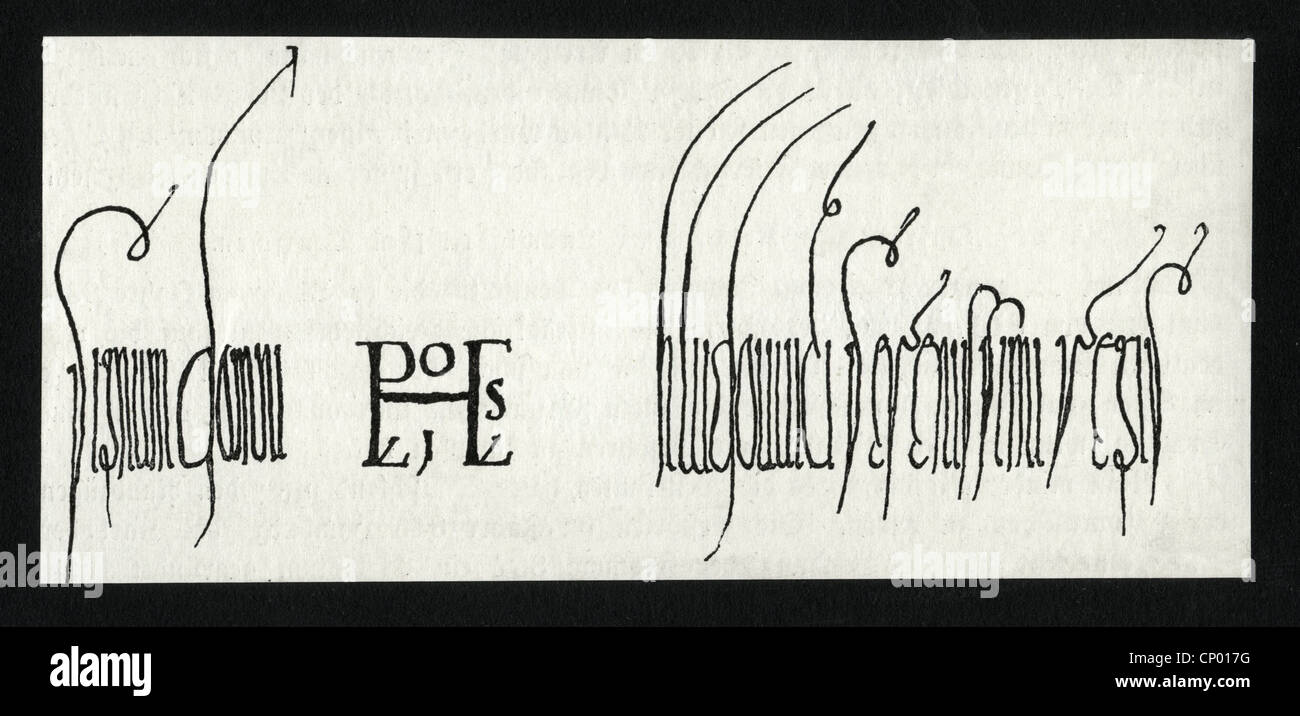 signum domni hludouuici serenissimi regis
alamy
Image ID: CP017G
www.alamy.com